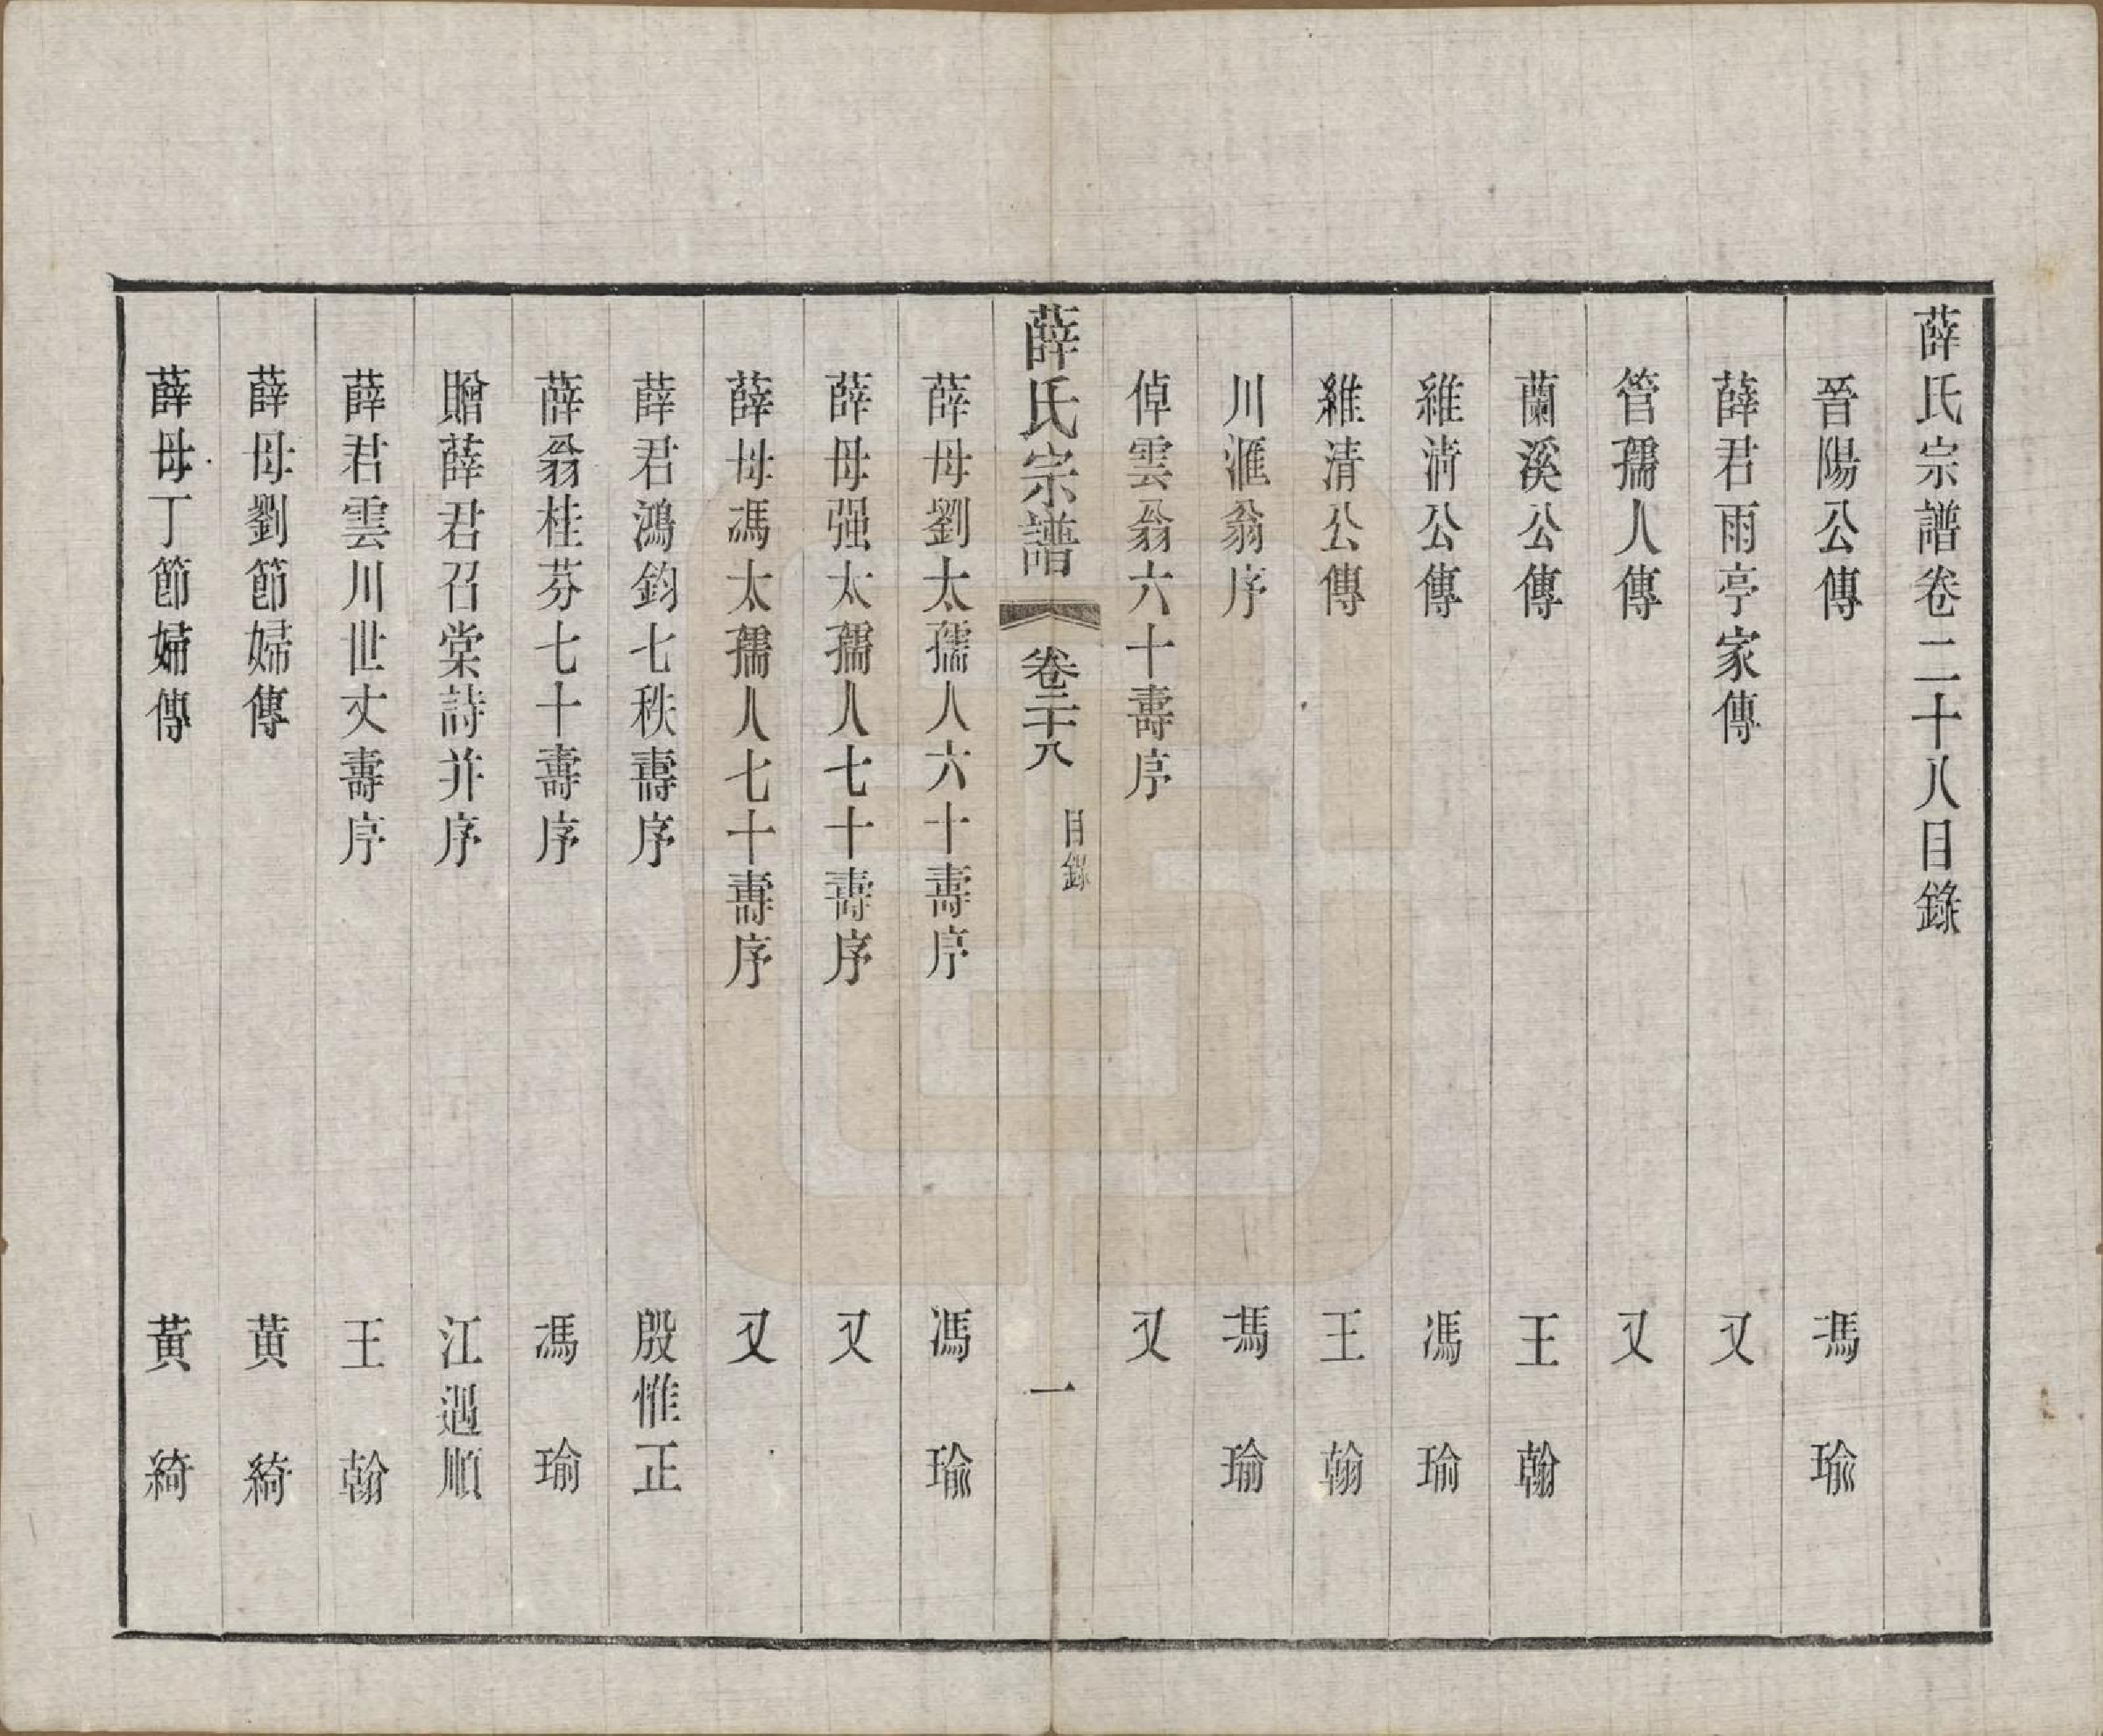 薛氏宗譜卷二十八目錄
晉陽公傳 馮瑜
薛君雨亭家傳 又
管孺人傳 又
蘭溪公傳 王翰
維清公傳 馮瑜
維清公傳 王翰
川滙翁序 馮瑜
倬雲翁六十壽序 又
薛氏宗譜 卷二十八 目錄 一
薛母劉太孺人六十壽序 馮瑜
薛母强太孺人七十壽序 又
薛母馮太孺人七十壽序 又
薛君鴻鈞七秩壽序 殷惟正
薛翁桂芬七十壽序 馮瑜
贈薛君召棠詩并序 江遇順
薛君雲川世丈壽序 王翰
薛母劉節婦傳 黃綺
薛母丁節婦傳 黃綺